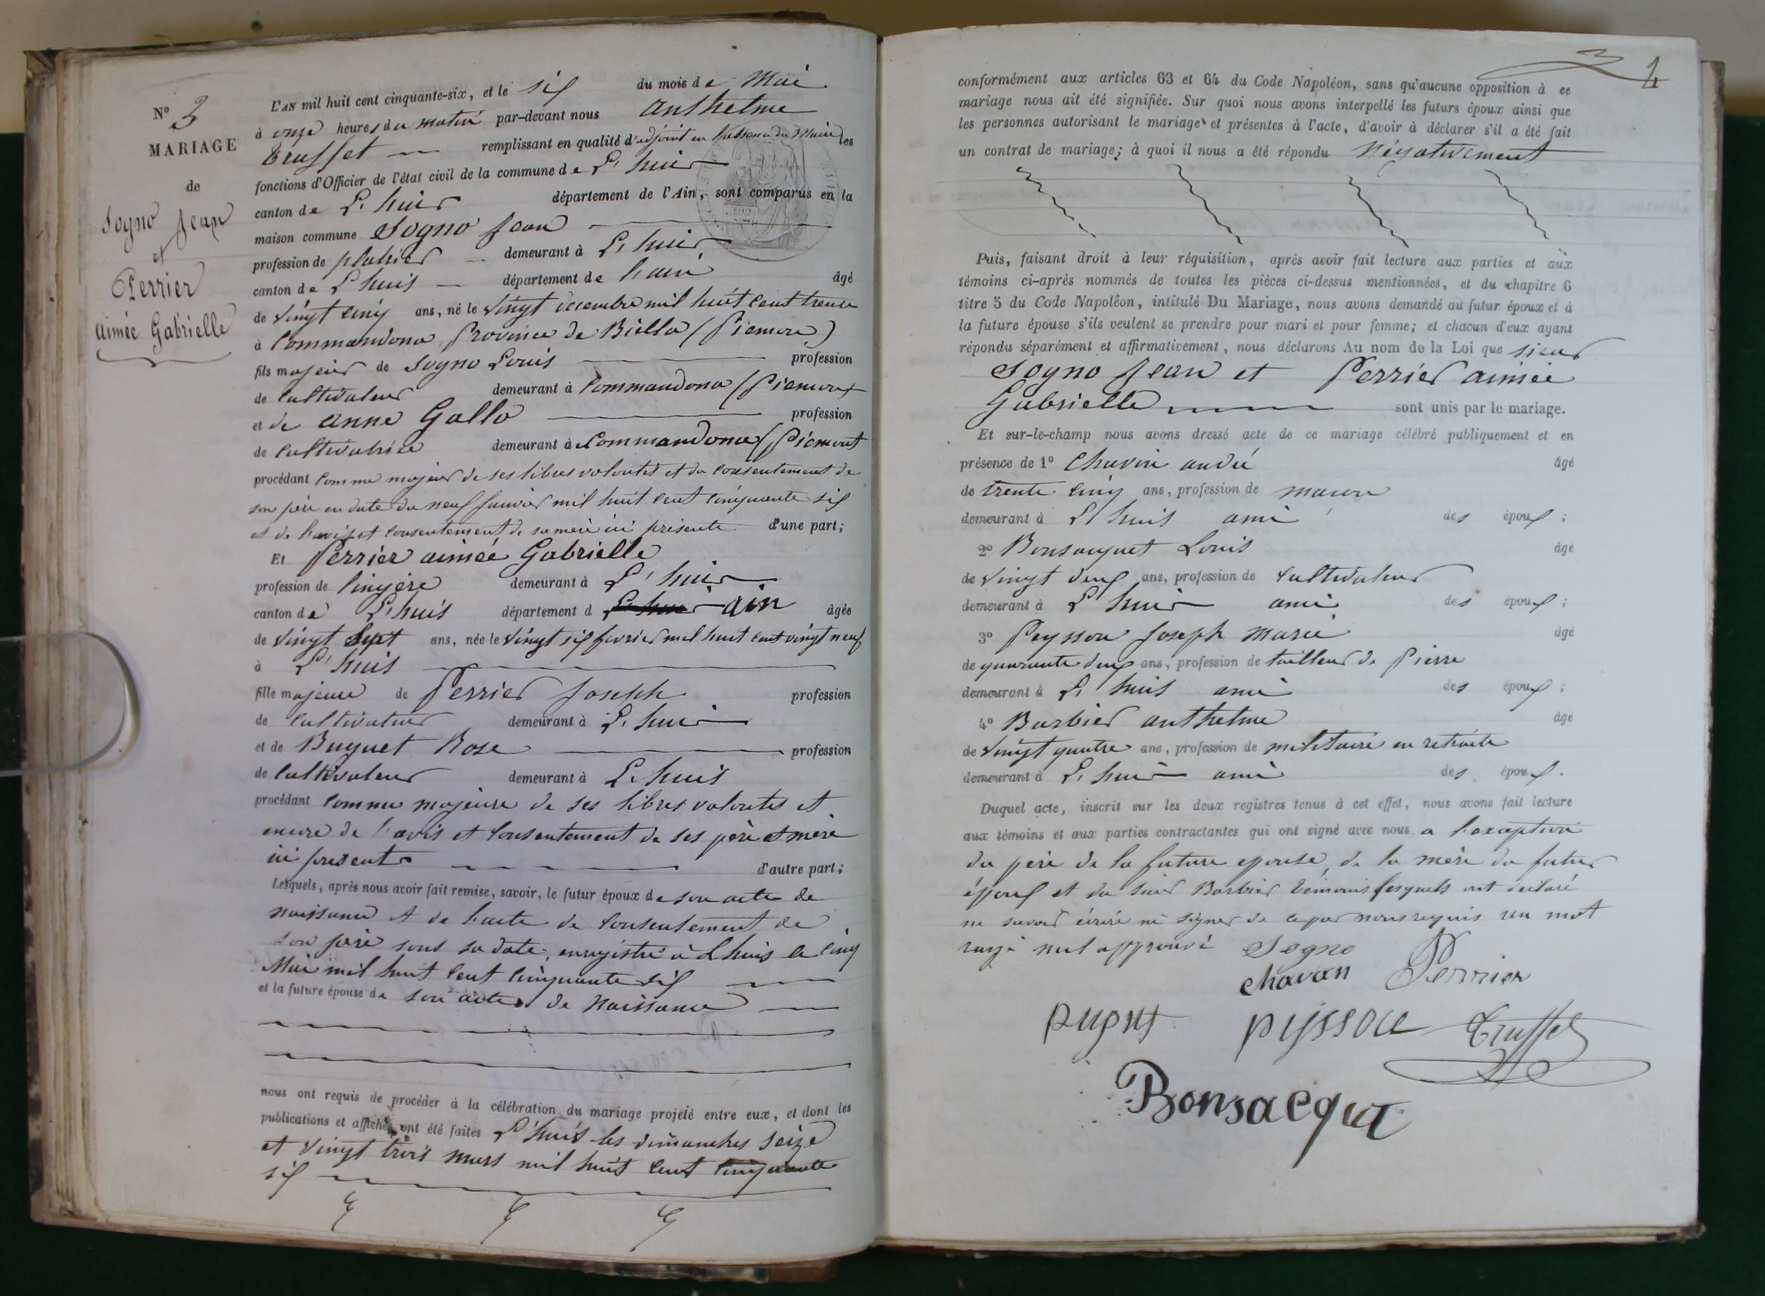 N° 3
MARIAGE
de
Sogno Jean
et
Perrier
aimée Gabrielle
L'AN mil huit cent cinquante-six, et le six du mois de Mai
à onze heures du matin par-devant nous anthelme
Trusset remplissant en qualité d'adjoint en l'absence du Maire les
fonctions d'Officier de l'état civil de la commune de L'huis
canton de L'huis département de l'Ain, sont comparus en la
maison commune Sogno Jean
profession de platrier demeurant à L'huis
canton de L'huis département de L'ain âgé
de vingt cinq ans, né le vingt décembre mil huit cent trente
à Commandona Province de Biella (Piemon)
fils majeur de Sogno Louis profession
de Cultivateur demeurant à Commandona (Piemont
et de anne Gallo profession
de Cultivatrice demeurant à Commandona (Piemont
procédant comme majeur de ses libres volontés et du consentement de
son père en date du neuf janvier mil huit cent cinquante six
et de l'avis et consentement de sa mère ici présente d'une part;
Et Perrier aimée Gabrielle
profession de lingère demeurant à L'huis
canton de L'huis département d L'huis ain âgée
de vingt sept ans, née le vingt six fevrier mil huit cent vingt neuf
à L'huis
fille majeure de Perrier Joseph profession
de Cultivateur demeurant à L'huis
et de Buguet Rose profession
de Cultivateur demeurant à L'huis
procédant comme majeure de ses libres volontés et
encore de l'avis et consentement de ses père et mère
ici présents d'autre part;
Lesquels, après nous avoir fait remise, savoir, le futur époux de son acte de
naissance et de l'acte de consentement de
son père sous sa date, enregistré à Lhuis le cinq
Mai mil huit cent cinquante six
et la future épouse de son acte de naissance
nous ont requis de procéder à la célébration du mariage projeté entre eux, et dont les
publications et affiches ont été faites L'huis les dimanches seize
et vingt trois mars mil huit cent cinquante
six
4
conformément aux articles 63 et 64 du Code Napoléon, sans qu'aucune opposition à ce
mariage nous ait été signifiée. Sur quoi nous avons interpellé les futurs époux ainsi que
les personnes autorisant le mariage et présentes à l'acte, d'avoir à déclarer s'il a été fait
un contrat de mariage; à quoi il nous a été répondu Négativement
Puis, faisant droit à leur réquisition, après avoir fait lecture aux parties et aux
témoins ci-après nommés de toutes les pièces ci-dessus mentionnées, et du chapitre 6
titre 5 du Code Napoléon, intitulé Du Mariage, nous avons demandé au futur époux et à
la future épouse s'ils veulent se prendre pour mari et pour femme; et chacun d'eux ayant
répondu séparément et affirmativement, nous déclarons Au nom de la Loi que sieur
Sogno Jean et Perrier aimée
Gabrielle sont unis par le mariage.
Et sur-le-champ nous avons dressé acte de ce mariage célébré publiquement et en
présence de 1° Chavon andré âgé
de trente cinq ans, profession de macon
demeurant à L'huis ami des époux;
2° Bonsacquet Louis âgé
de vingt deux ans, profession de Cultivateur
demeurant à L'huis ami des époux;
3° Peysson Joseph Marie âgé
de quarante deux ans, profession de tailleur de Pierre
demeurant à L'huis ami des époux;
4° Barbier anthelme âgé
de vingt quatre ans, profession de militaire en retraite
demeurant à L'huis ami des époux.
Duquel acte, inscrit sur les deux registres tenus à cet effet, nous avons fait lecture
aux témoins et aux parties contractantes qui ont signé avec nous a l'exception
du père de la future epouse, de la mère du futur
époux et du sieur Barbier témoins lesquels ont declaré
ne savoir écrire ni signer de ce par nous requis un mot
rayé nul approuvé Sogno
chavon Perrier
pugns pyssou Trusset
Bonsacquet